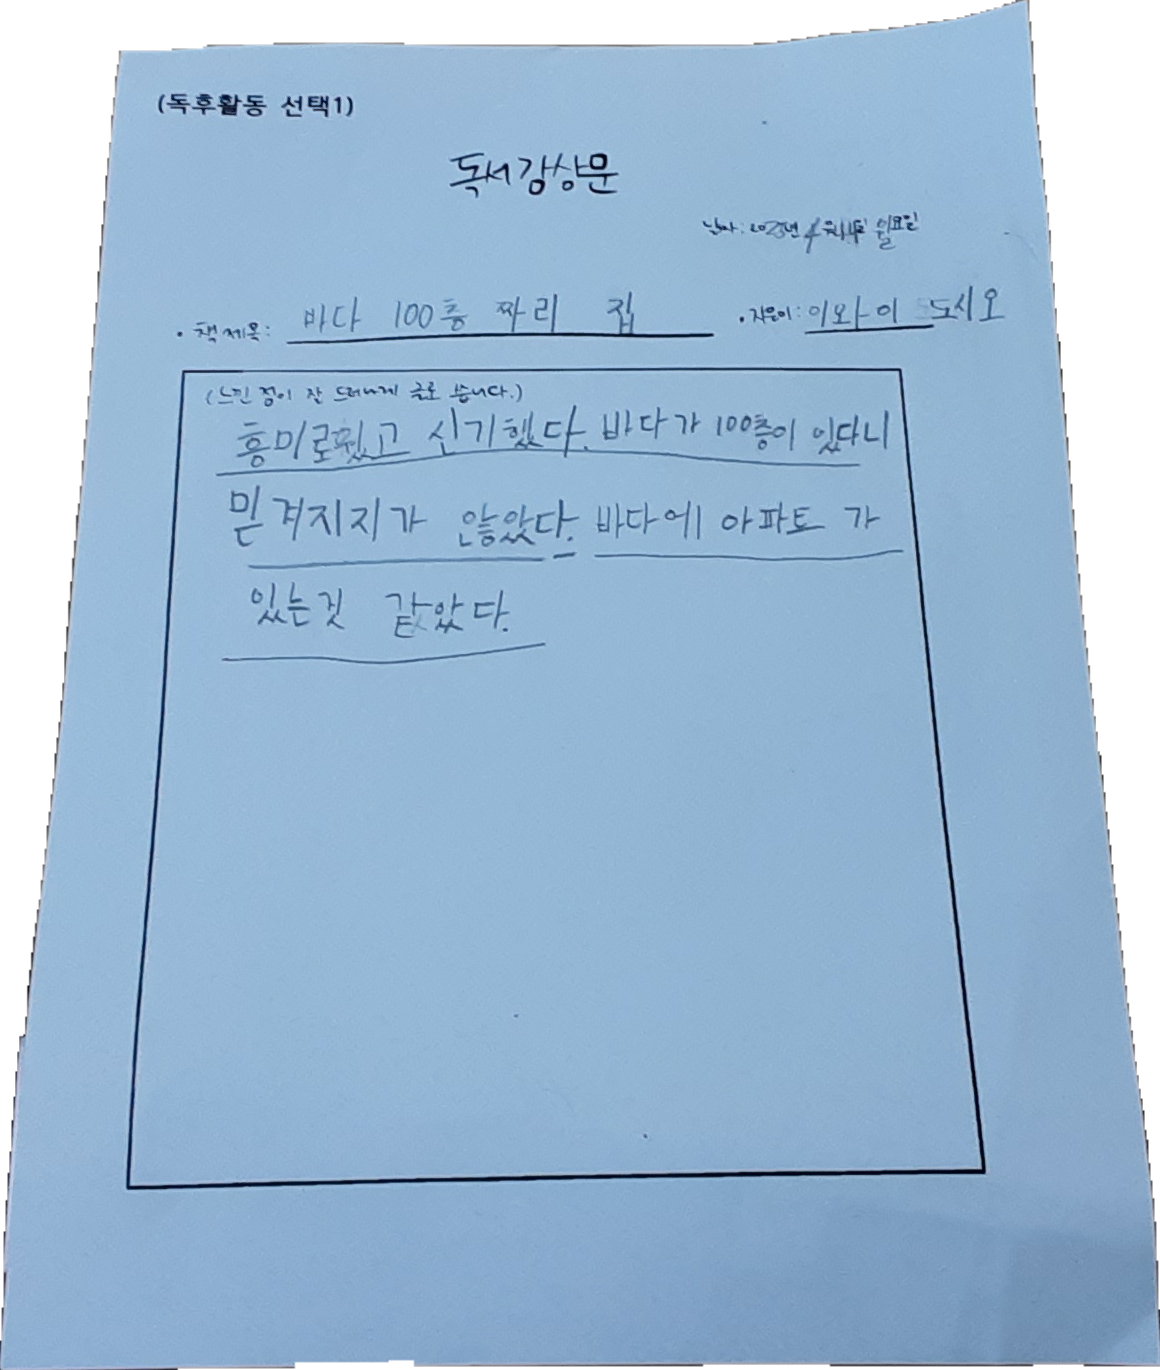 (독후활동 선택1)
독서감상문
날짜: 2025년 4월 일요일
• 책 제목: 바다 100층 짜리 집 • 지은이: 이와이 도시오
(느낀 점이 잘 드러나게 글로 씁니다.)
흥미로웠고 신기했다. 바다가 100층이 있다니
믿겨지지가 않았다. 바다에 아파트 가
있는것 같았다.